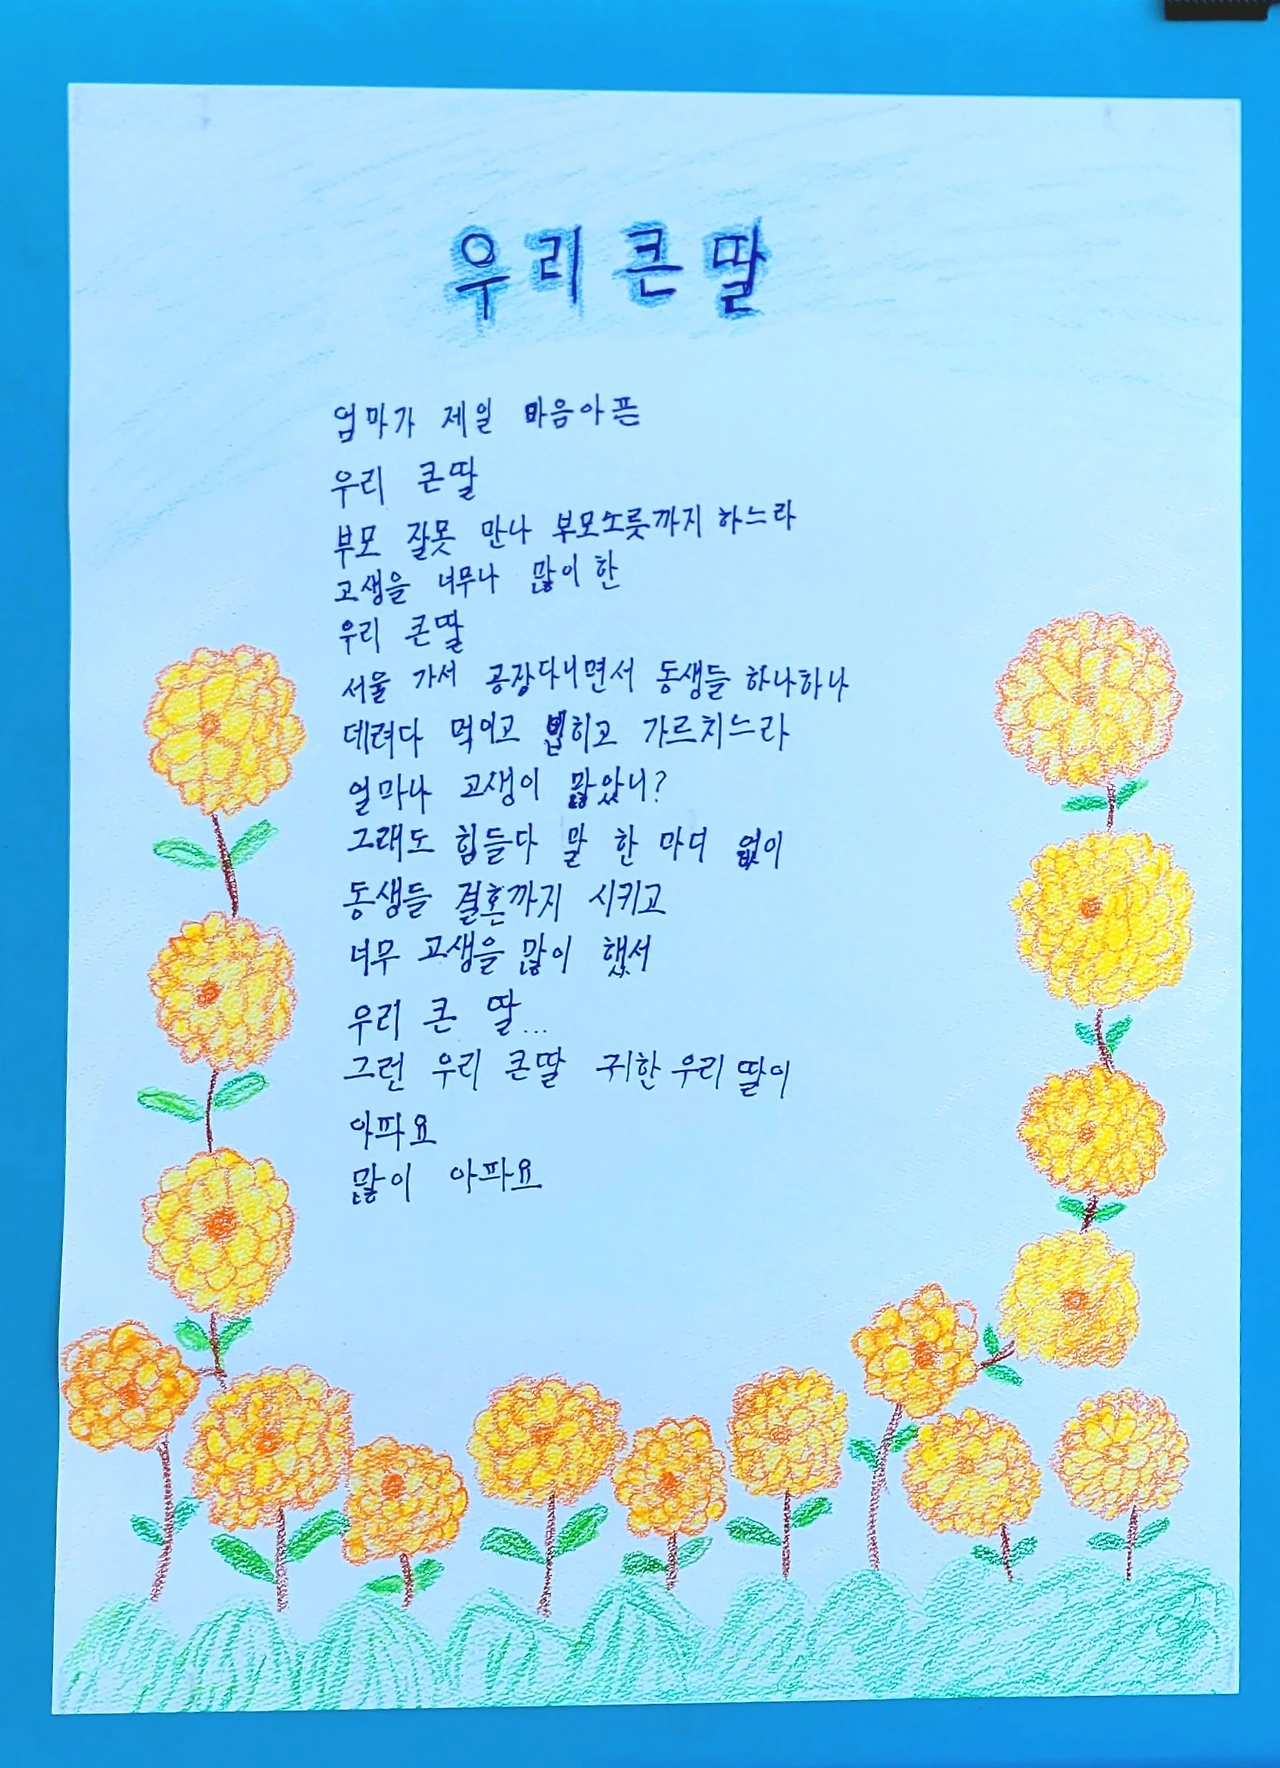 우리 큰 딸
엄마가 제일 마음아픈
우리 큰딸
부모 잘못 만나 부모노릇까지 하느라
고생을 너무나 많이 한
우리 큰딸
서울 가서 공장다니면서 동생들 하나하나
데려다 먹이고 입히고 가르치느라
얼마나 고생이 많았니?
그래도 힘들다 말 한 마디 없이
동생들 결혼까지 시키고
너무 고생을 많이 했서
우리 큰 딸...
그런 우리 큰딸 귀한 우리 딸이
아파요
많이 아파요